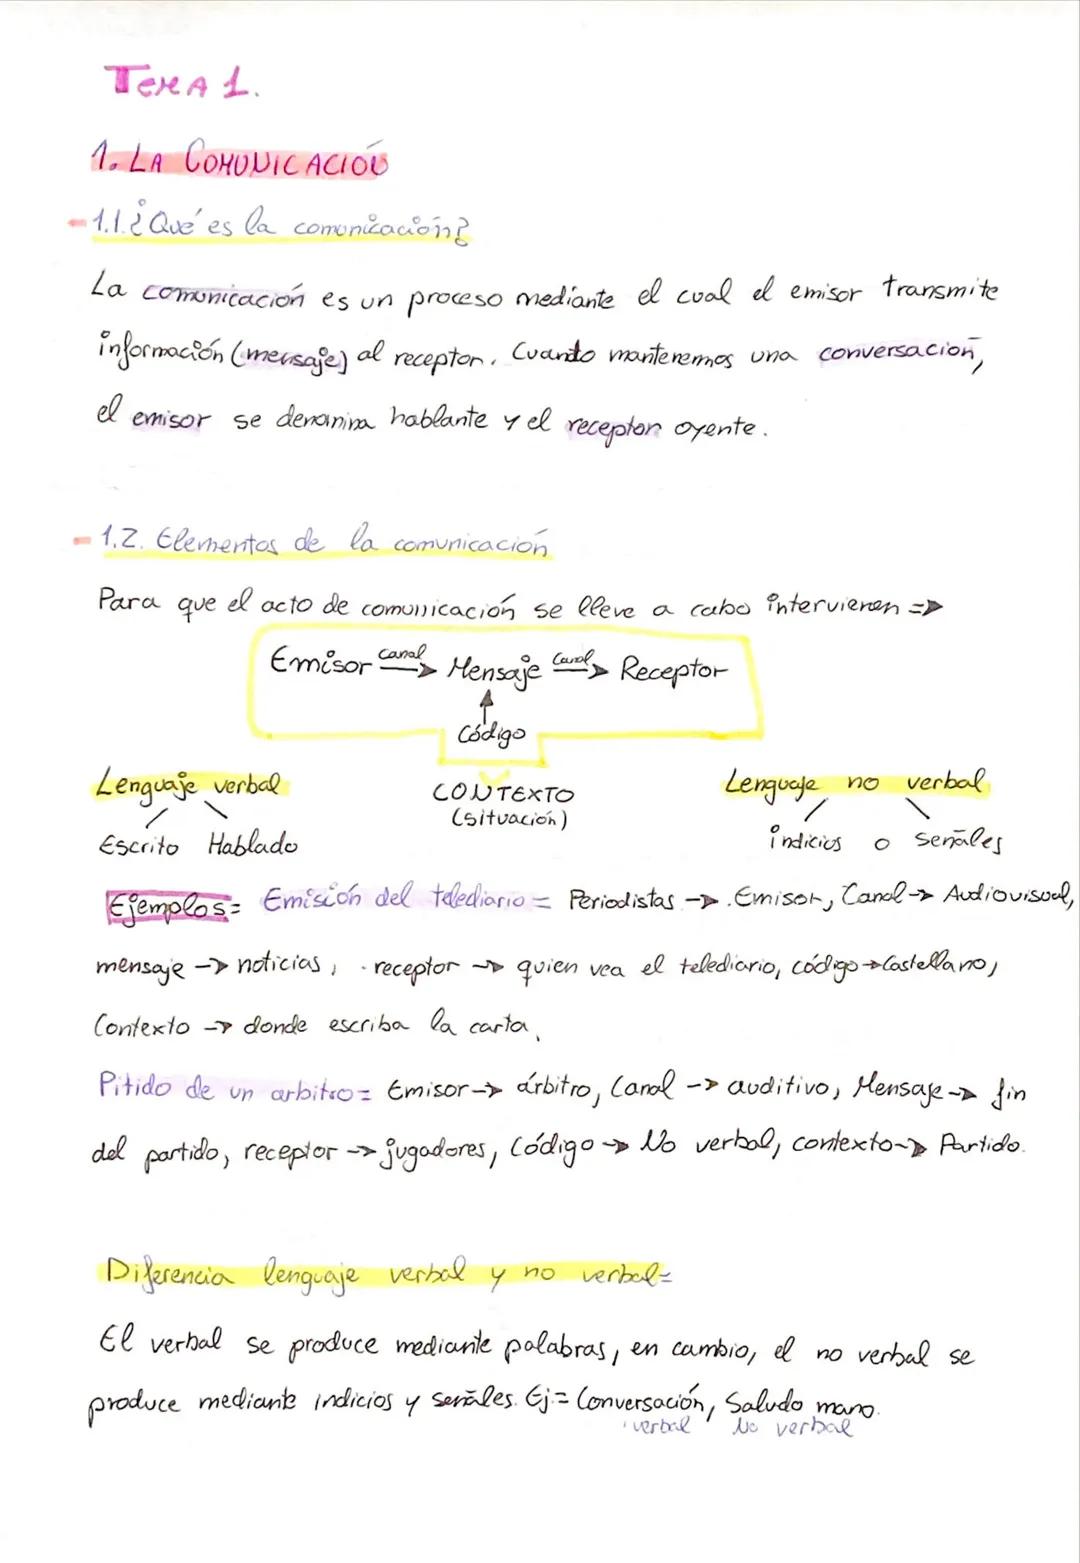 TEMA 1.
1. LA COMUNICACIÓN
- 1.1. ¿Qué es la comunicación?
La comunicación es un proceso mediante el cual el emisor transmite
información (mensaje) al receptor. Cuando mantenemos una conversación,
el emisor se denomina hablante y el receptor oyente.
- 1.2. Elementos de la comunicación
Para que el acto de comunicación se lleve a cabo intervienen =>
Emisor canal → Mensaje Canal → Receptor
↑
Código
Lenguaje verbal CONTEXTO Lenguaje no verbal
(situación)
Escrito Hablado indicios o señales
Ejemplos= Emisión del telediario = Periodistas → Emisor, Canal → Audiovisual,
mensaje → noticias, receptor → quien vea el telediario, código → Castellano,
Contexto → donde escriba la carta.
Pitido de un arbitro= Emisor → árbitro, Canal → auditivo, Mensaje → fin
del partido, receptor → jugadores, Código → No verbal, contexto → Partido.
Diferencia lenguaje verbal y no verbal=
El verbal se produce mediante palabras, en cambio, el no verbal se
produce mediante indicios y señales. Ej.= Conversación, Saludo mano.
verbal No verbal